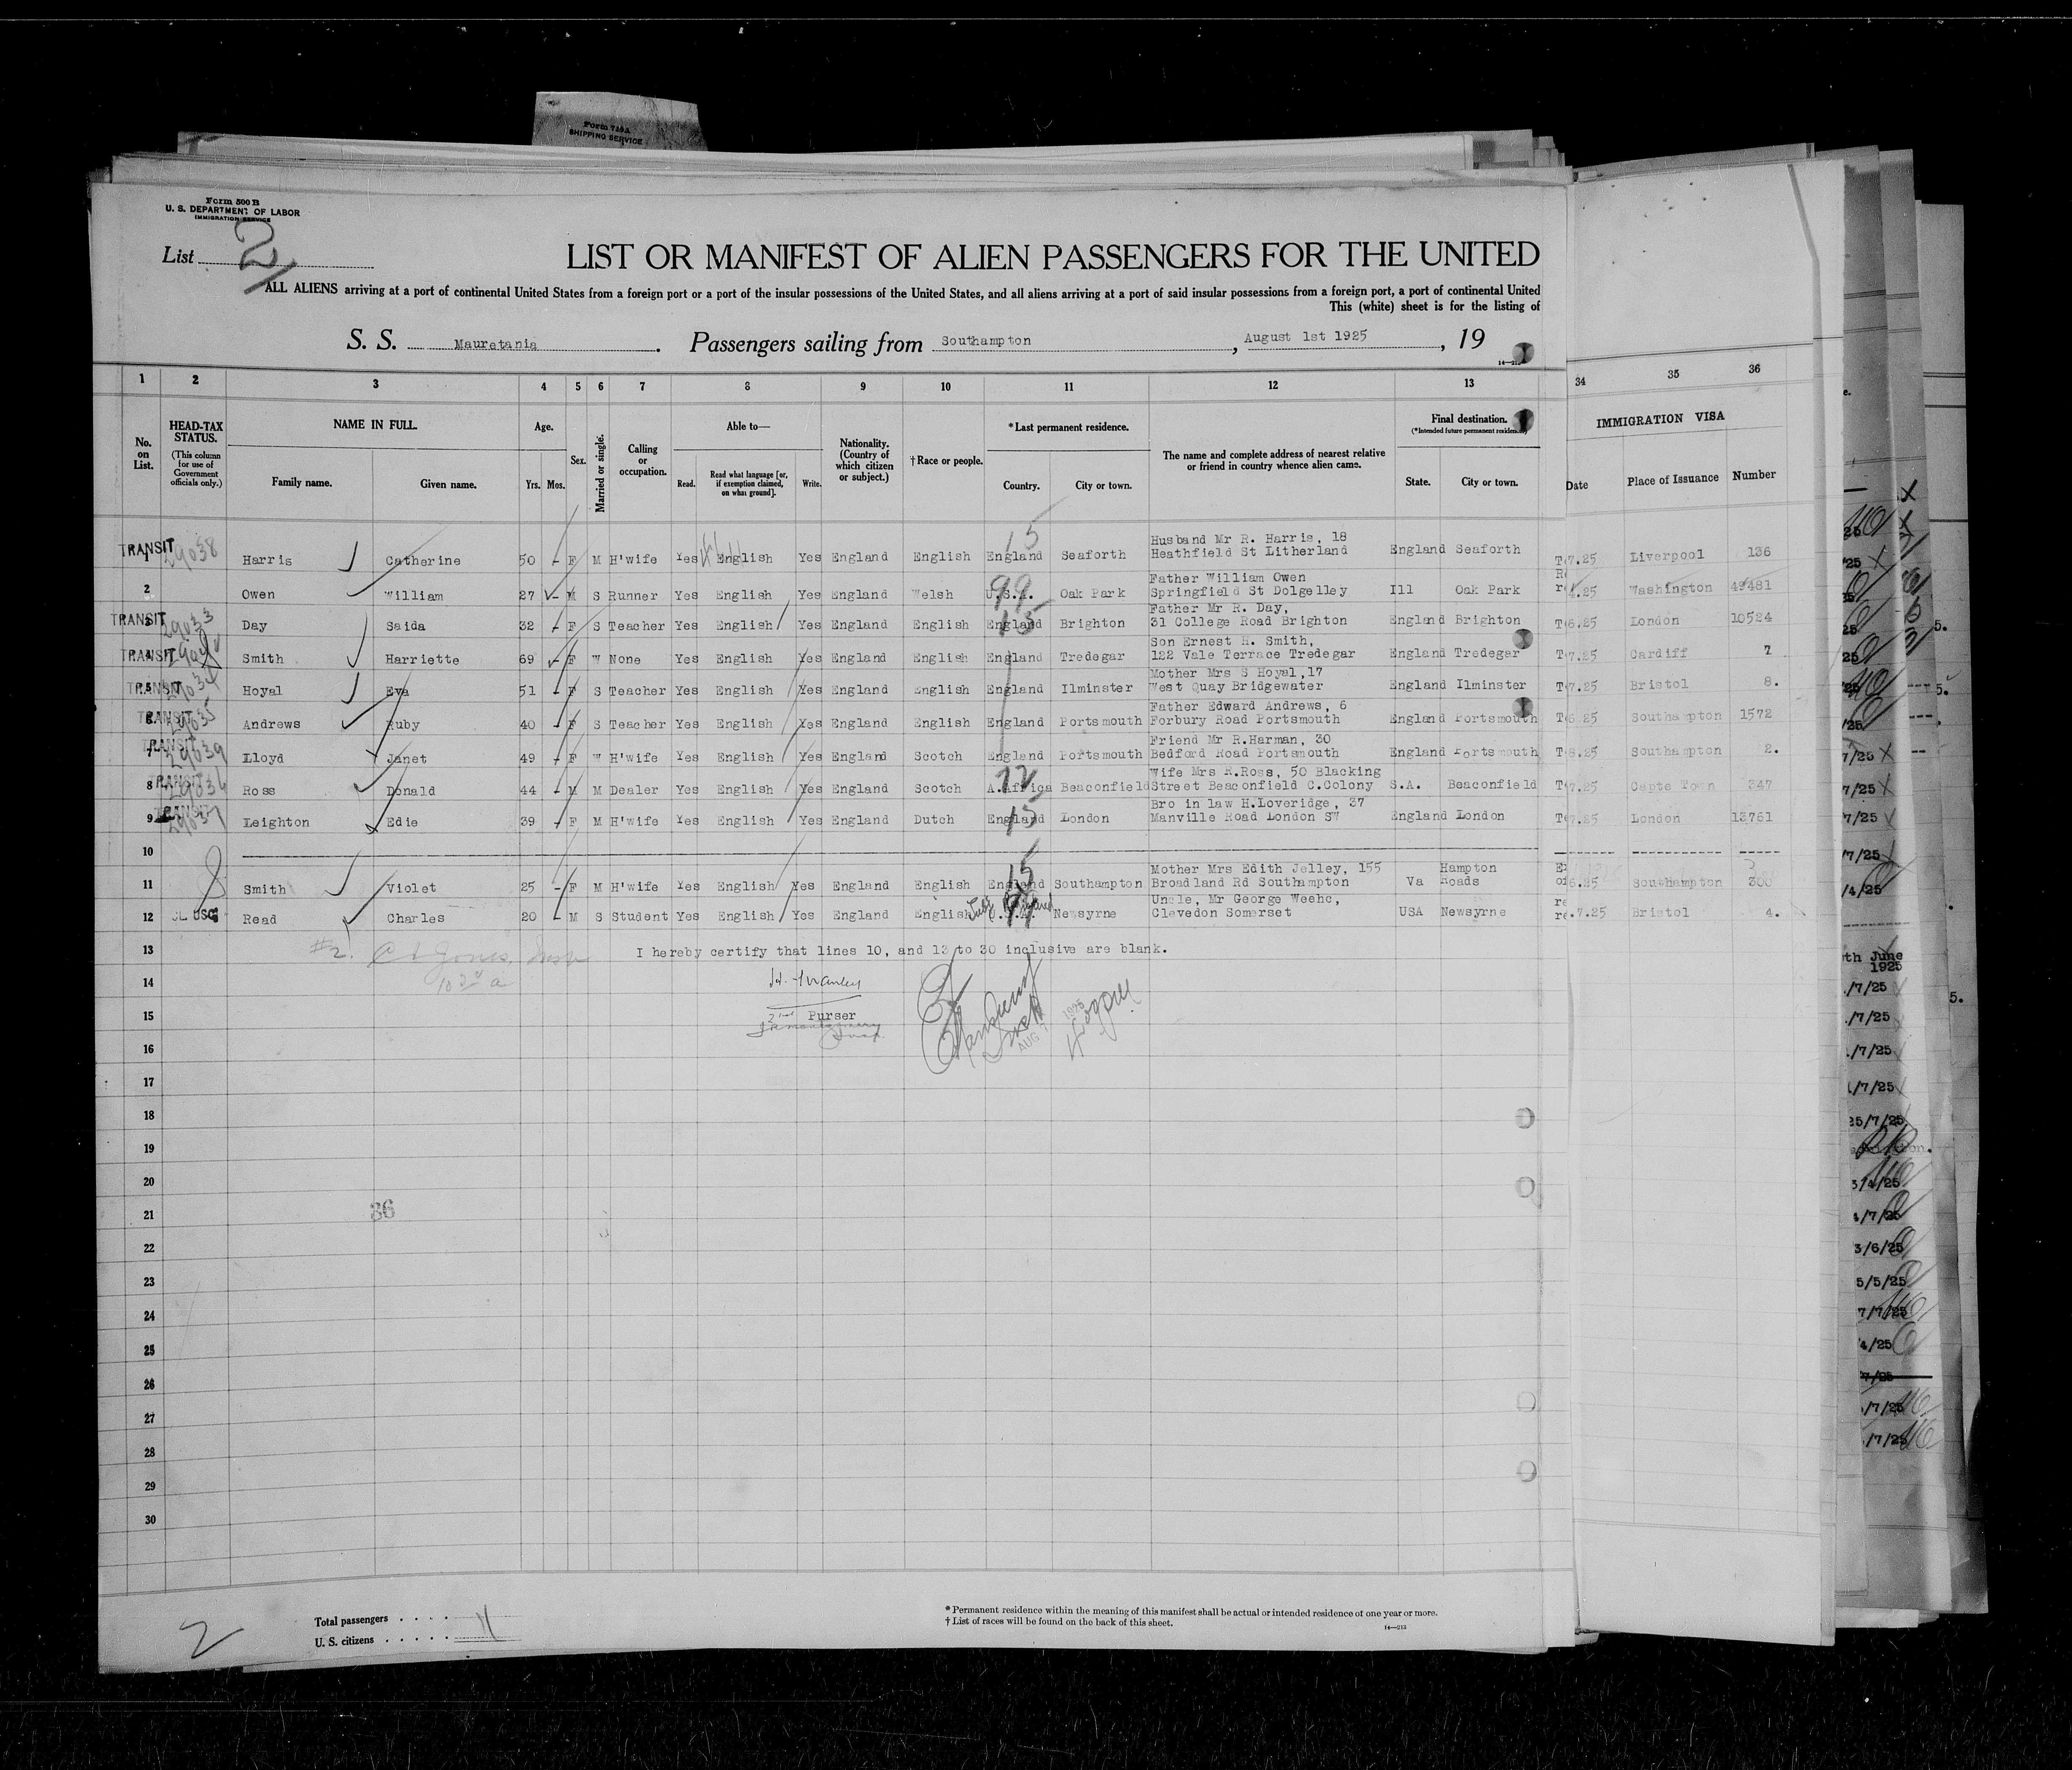 Form 719A
SHIPPING SERVICE
Form 500 B
U. S. DEPARTMENT OF LABOR
IMMIGRATION SERVICE
List 2
LIST OR MANIFEST OF ALIEN PASSENGERS FOR THE UNITED
ALL ALIENS arriving at a port of continental United States from a foreign port or a port of the insular possessions of the United States, and all aliens arriving at a port of said insular possessions from a foreign port, a port of continental United
This (white) sheet is for the listing of
S. S. Mauretania . Passengers sailing from Southampton , August 1st 1925 , 19
1 2 3 4 5 6 7 8 9 10 11 12 13 34 35 36
No. on List.
HEAD-TAX STATUS.
(This column for use of Government officials only.)
NAME IN FULL.
Family name. Given name.
Age.
Yrs. Mos.
Sex.
Married or single.
Calling or occupation.
Able to—
Read. Read what language [or, if exemption claimed, on what ground]. Write.
Nationality. (Country of which citizen or subject.)
†Race or people.
*Last permanent residence.
Country. City or town.
The name and complete address of nearest relative or friend in country whence alien came.
Final destination.
(*Intended future permanent residence.)
State. City or town.
IMMIGRATION VISA
Date Place of Issuance Number
15
Husband Mr R. Harris, 18
TRANSIT 29038 1 Harris Catherine 50 - F M H'wife Yes English Yes England English England Seaforth Heathfield St Litherland England Seaforth 7.25 Liverpool 136
99
Father William Owen
2 Owen William 27 - M S Runner Yes English Yes England Welsh U.S.A. Oak Park Springfield St Dolgelley Ill Oak Park .25 Washington 49481
15
Father Mr R. Day,
TRANSIT 29033 3 Day Saida 32 - F S Teacher Yes English Yes England English England Brighton 31 College Road Brighton England Brighton 6.25 London 10524
Son Ernest H. Smith,
TRANSIT 4 Smith Harriette 69 - F W None Yes English Yes England English England Tredegar 122 Vale Terrace Tredegar England Tredegar 7.25 Cardiff 7
Mother Mrs S Hoyal,17
TRANSIT 29034 5 Hoyal Eva 51 - F S Teacher Yes English Yes England English England Ilminster West Quay Bridgewater England Ilminster 7.25 Bristol 8.
Father Edward Andrews, 6
TRANSIT 29035 6 Andrews Ruby 40 - F S Teacher Yes English Yes England English England Portsmouth Forbury Road Portsmouth England Portsmouth 6.25 Southampton 1572
Friend Mr R.Harman, 30
TRANSIT 29039 7 Lloyd Janet 49 - F W H'wife Yes English Yes England Scotch England Portsmouth Bedford Road Portsmouth England Portsmouth 8.25 Southampton 2.
Wife Mrs R.Ross, 50 Blacking
TRANSIT 29036 8 Ross Donald 44 - M M Dealer Yes English Yes England Scotch A.Africa Beaconfield Street Beaconfield C.Colony S.A. Beaconfield 7.25 Capte Town 347
15
Bro in law H.Loveridge, 37
TRANSIT 29037 9 Leighton Edie 39 - F M H'wife Yes English Yes England Dutch England London Manville Road London SW England London 7.25 London 13761
10
15
Mother Mrs Edith Jelley, 155 Hampton
11 Smith Violet 25 - F M H'wife Yes English Yes England English England Southampton Broadland Rd Southampton Va Roads 6.25 Southampton 300
Uncle, Mr George Weehc,
12 Read Charles 20 - M S Student Yes English Yes England English U.S.A. Newsyrne Clevedon Somerset USA Newsyrne .7.25 Bristol 4.
13 #2. I hereby certify that lines 10, and 13 to 30 inclusive are blank.
14
15 2nd Purser
1925
AUG 7
16
17
18
19
20
21 36
22
23
24
25
26
27
28
29
30
2
Total passengers . . . .
U. S. citizens . . . . . 11
* Permanent residence within the meaning of this manifest shall be actual or intended residence of one year or more.
† List of races will be found on the back of this sheet.
14—212